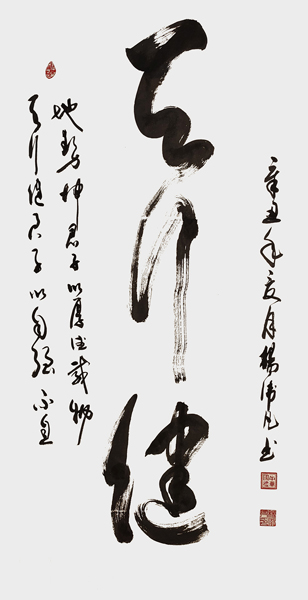 天行健
天行健君子以自强不息
地势坤君子以厚德载物
辛丑年夏月楊凡书